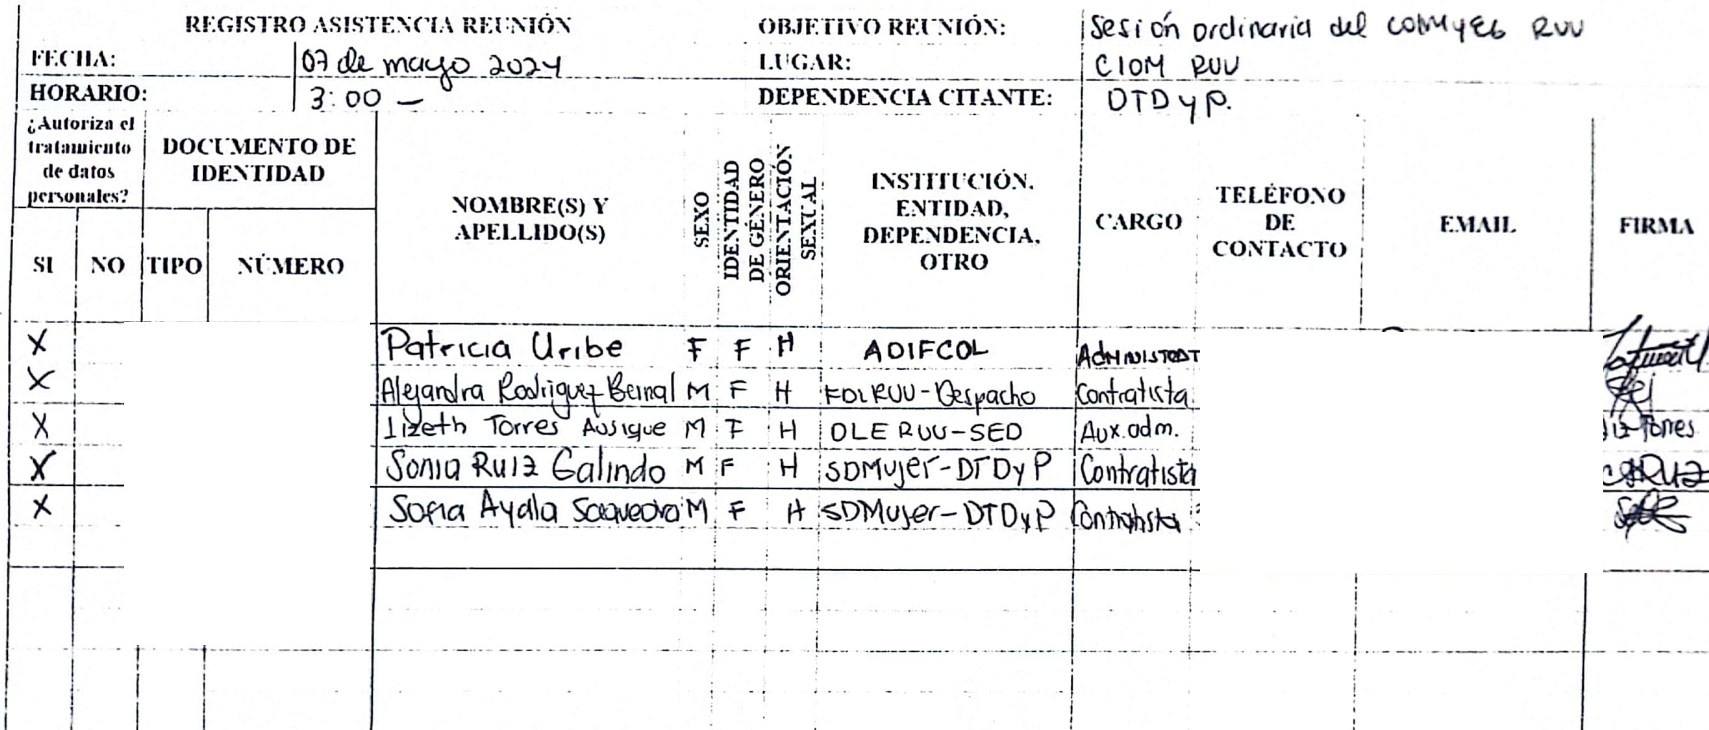 REGISTRO ASISTENCIA REUNIÓN OBJETIVO REUNIÓN: Sesión ordinaria del COLMYEG RUU
FECHA: 07 de mayo 2024 LUGAR: CIOM RUU
HORARIO: 3:00 — DEPENDENCIA CITANTE: DTDyP.
¿Autoriza el tratamiento de datos personales?
SI NO
DOCUMENTO DE IDENTIDAD
TIPO NÚMERO
NOMBRE(S) Y APELLIDO(S)
SEXO
IDENTIDAD DE GÉNERO
ORIENTACIÓN SEXUAL
INSTITUCIÓN, ENTIDAD, DEPENDENCIA, OTRO
CARGO
TELÉFONO DE CONTACTO
EMAIL
FIRMA
X Patricia Uribe F F H ADIFCOL
X Alejandra Rodriguez Bernal M F H FDLRUU-Despacho Contratista
X Lizeth Torres Ausique M F H DLE RUU-SED Aux.adm. Torres
X Sonia Ruiz Galindo M F H SDMujer-DTDyP Contratista
X Sofia Ayala Saavedra M F H SDMujer-DTDyP Contratista